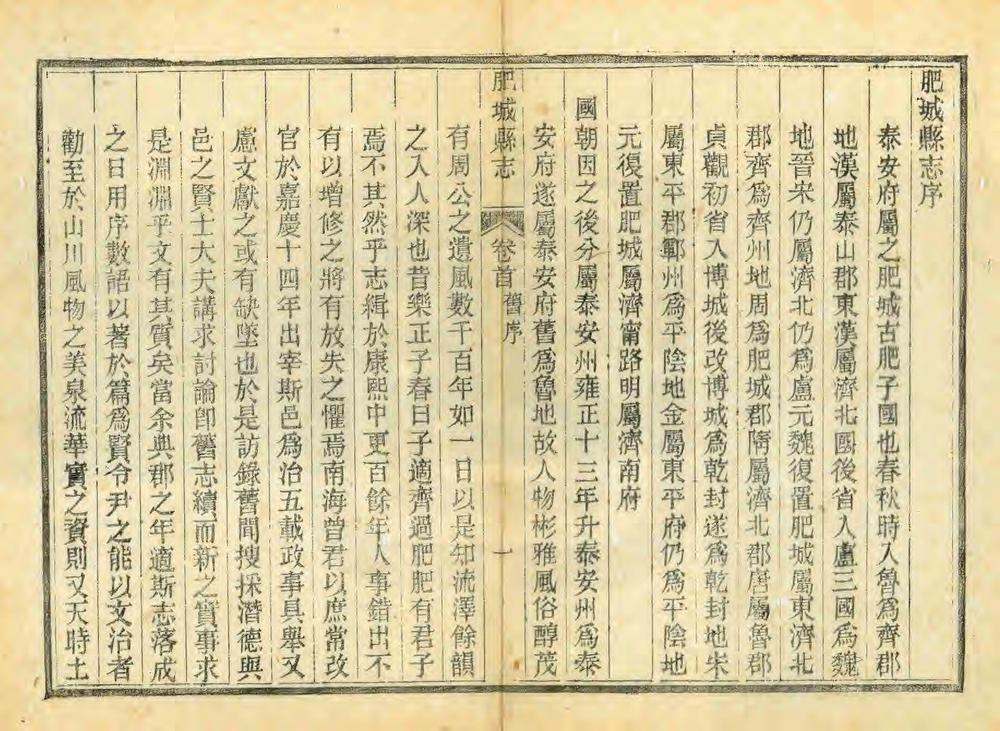 肥城縣志序
泰安府屬之肥城古肥子國也春秋時入魯爲齊郡
地漢屬泰山郡東漢屬濟北國後省入盧三國爲魏
地晉宋仍屬濟北仍爲盧元魏復置肥城屬東濟北
郡齊爲齊州地周爲肥城郡隋屬濟北郡唐屬魯郡
貞觀初省入博城後改博城爲乾封遂爲乾封地宋
屬東平郡鄆州爲平陰地金屬東平府仍爲平陰地
元復置肥城屬濟甯路明屬濟南府
國朝因之後分屬泰安州雍正十三年升泰安州爲泰
安府遂屬泰安府舊爲魯地故人物彬雅風俗醇茂
肥城縣志 卷首 舊序 一
有周公之遺風數千百年如一日以是知流澤餘韻
之入人深也昔樂正子春曰子適齊過肥肥有君子
焉不其然乎志緝於康熙中更百餘年人事錯出不
有以增修之將有放失之懼焉南海曾君以庶常改
官於嘉慶十四年出宰斯邑爲治五載政事具舉又
慮文獻之或有缺墜也於是訪錄舊聞搜採潛德與
邑之賢士大夫講求討論卽舊志續而新之實事求
是淵淵乎文有其質矣當余典郡之年適斯志落成
之日用序數語以著於篇爲賢令尹之能以文治者
勸至於山川風物之美泉流華實之資則又天時土